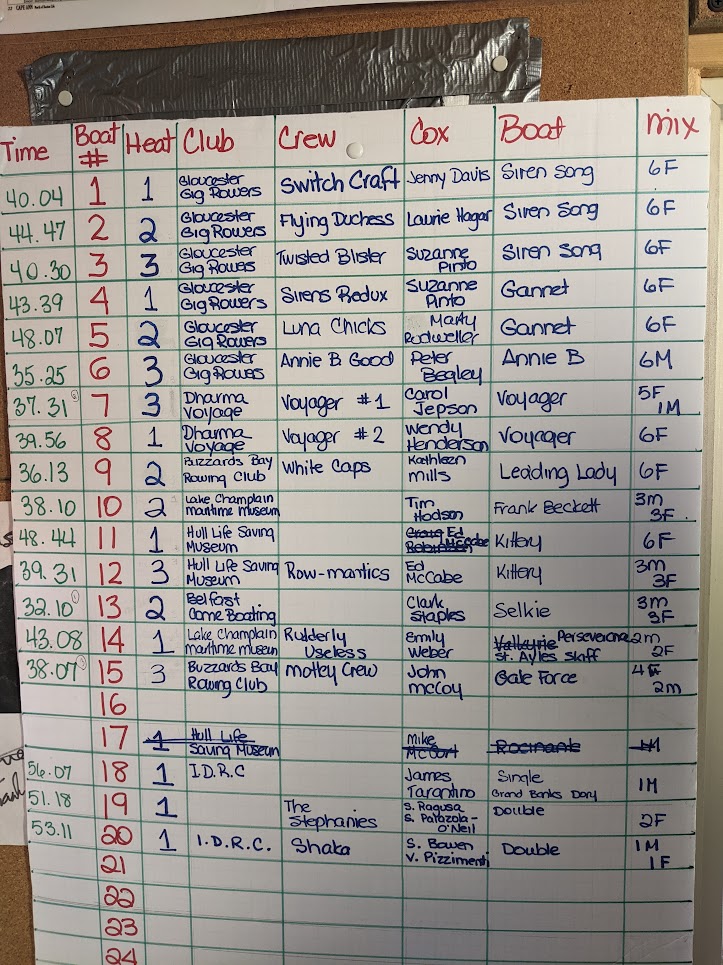 22 CAPE ANN
Time Boat # Heat Club Crew Cox Boat mix
40.04 1 1 Gloucester Gig Rowers Switch Craft Jenny Davis Siren Song 6F
44.47 2 2 Gloucester Gig Rowers Flying Duchess Laurie Hagar Siren Song 6F
40.30 3 3 Gloucester Gig Rowers Twisted Blister Suzanne Pinto Siren Song 6F
43.39 4 1 Gloucester Gig Rowers Sirens Redux Suzanne Pinto Gannet 6F
48.07 5 2 Gloucester Gig Rowers Luna Chicks Marty Rodweller Gannet 6F
35.25 6 3 Gloucester Gig Rowers Annie B Good Peter Begley Annie B 6M
37.31 7 3 Dharma Voyage Voyager #1 Carol Jepson Voyager 5F 1M
39.56 8 1 Dharma Voyage Voyager #2 Wendy Henderson Voyager 6F
36.13 9 2 Buzzards Bay Rowing Club White Caps Kathleen Mills Leading Lady 6F
38.10 10 2 Lake Champlain maritime museum Tim Hodson Frank Beckett 3m 3F
48.44 11 1 Hull Life Saving Museum Ed McCabe Kittery 6F
39.31 12 3 Hull Life Saving Museum Row-mantics Ed McCabe Kittery 3m 3F
32.10 13 2 Belfast Come Boating Clark Staples Selkie 3m 3F
43.08 14 1 Lake Champlain maritime museum Rudderly Useless Emily Weber Valkyrie Perseverance St. Ayles Skiff 2m 2F
38.07 15 3 Buzzards Bay Rowing Club Motley Crew John McCoy Gale Force 4F 2m
16
17 1 Hull Life Saving Museum Mike McCort Rocinante 1M
56.07 18 1 I.D.R.C James Tarantino Single Grand Banks Dory 1M
51.18 19 1 The Stephanies S. Ragusa S. Palazola-O'Neil Double 2F
53.11 20 1 I.D.R.C. Shaka S. Bowen V. Pizzimenti Double 1M 1F
21
22
23
24